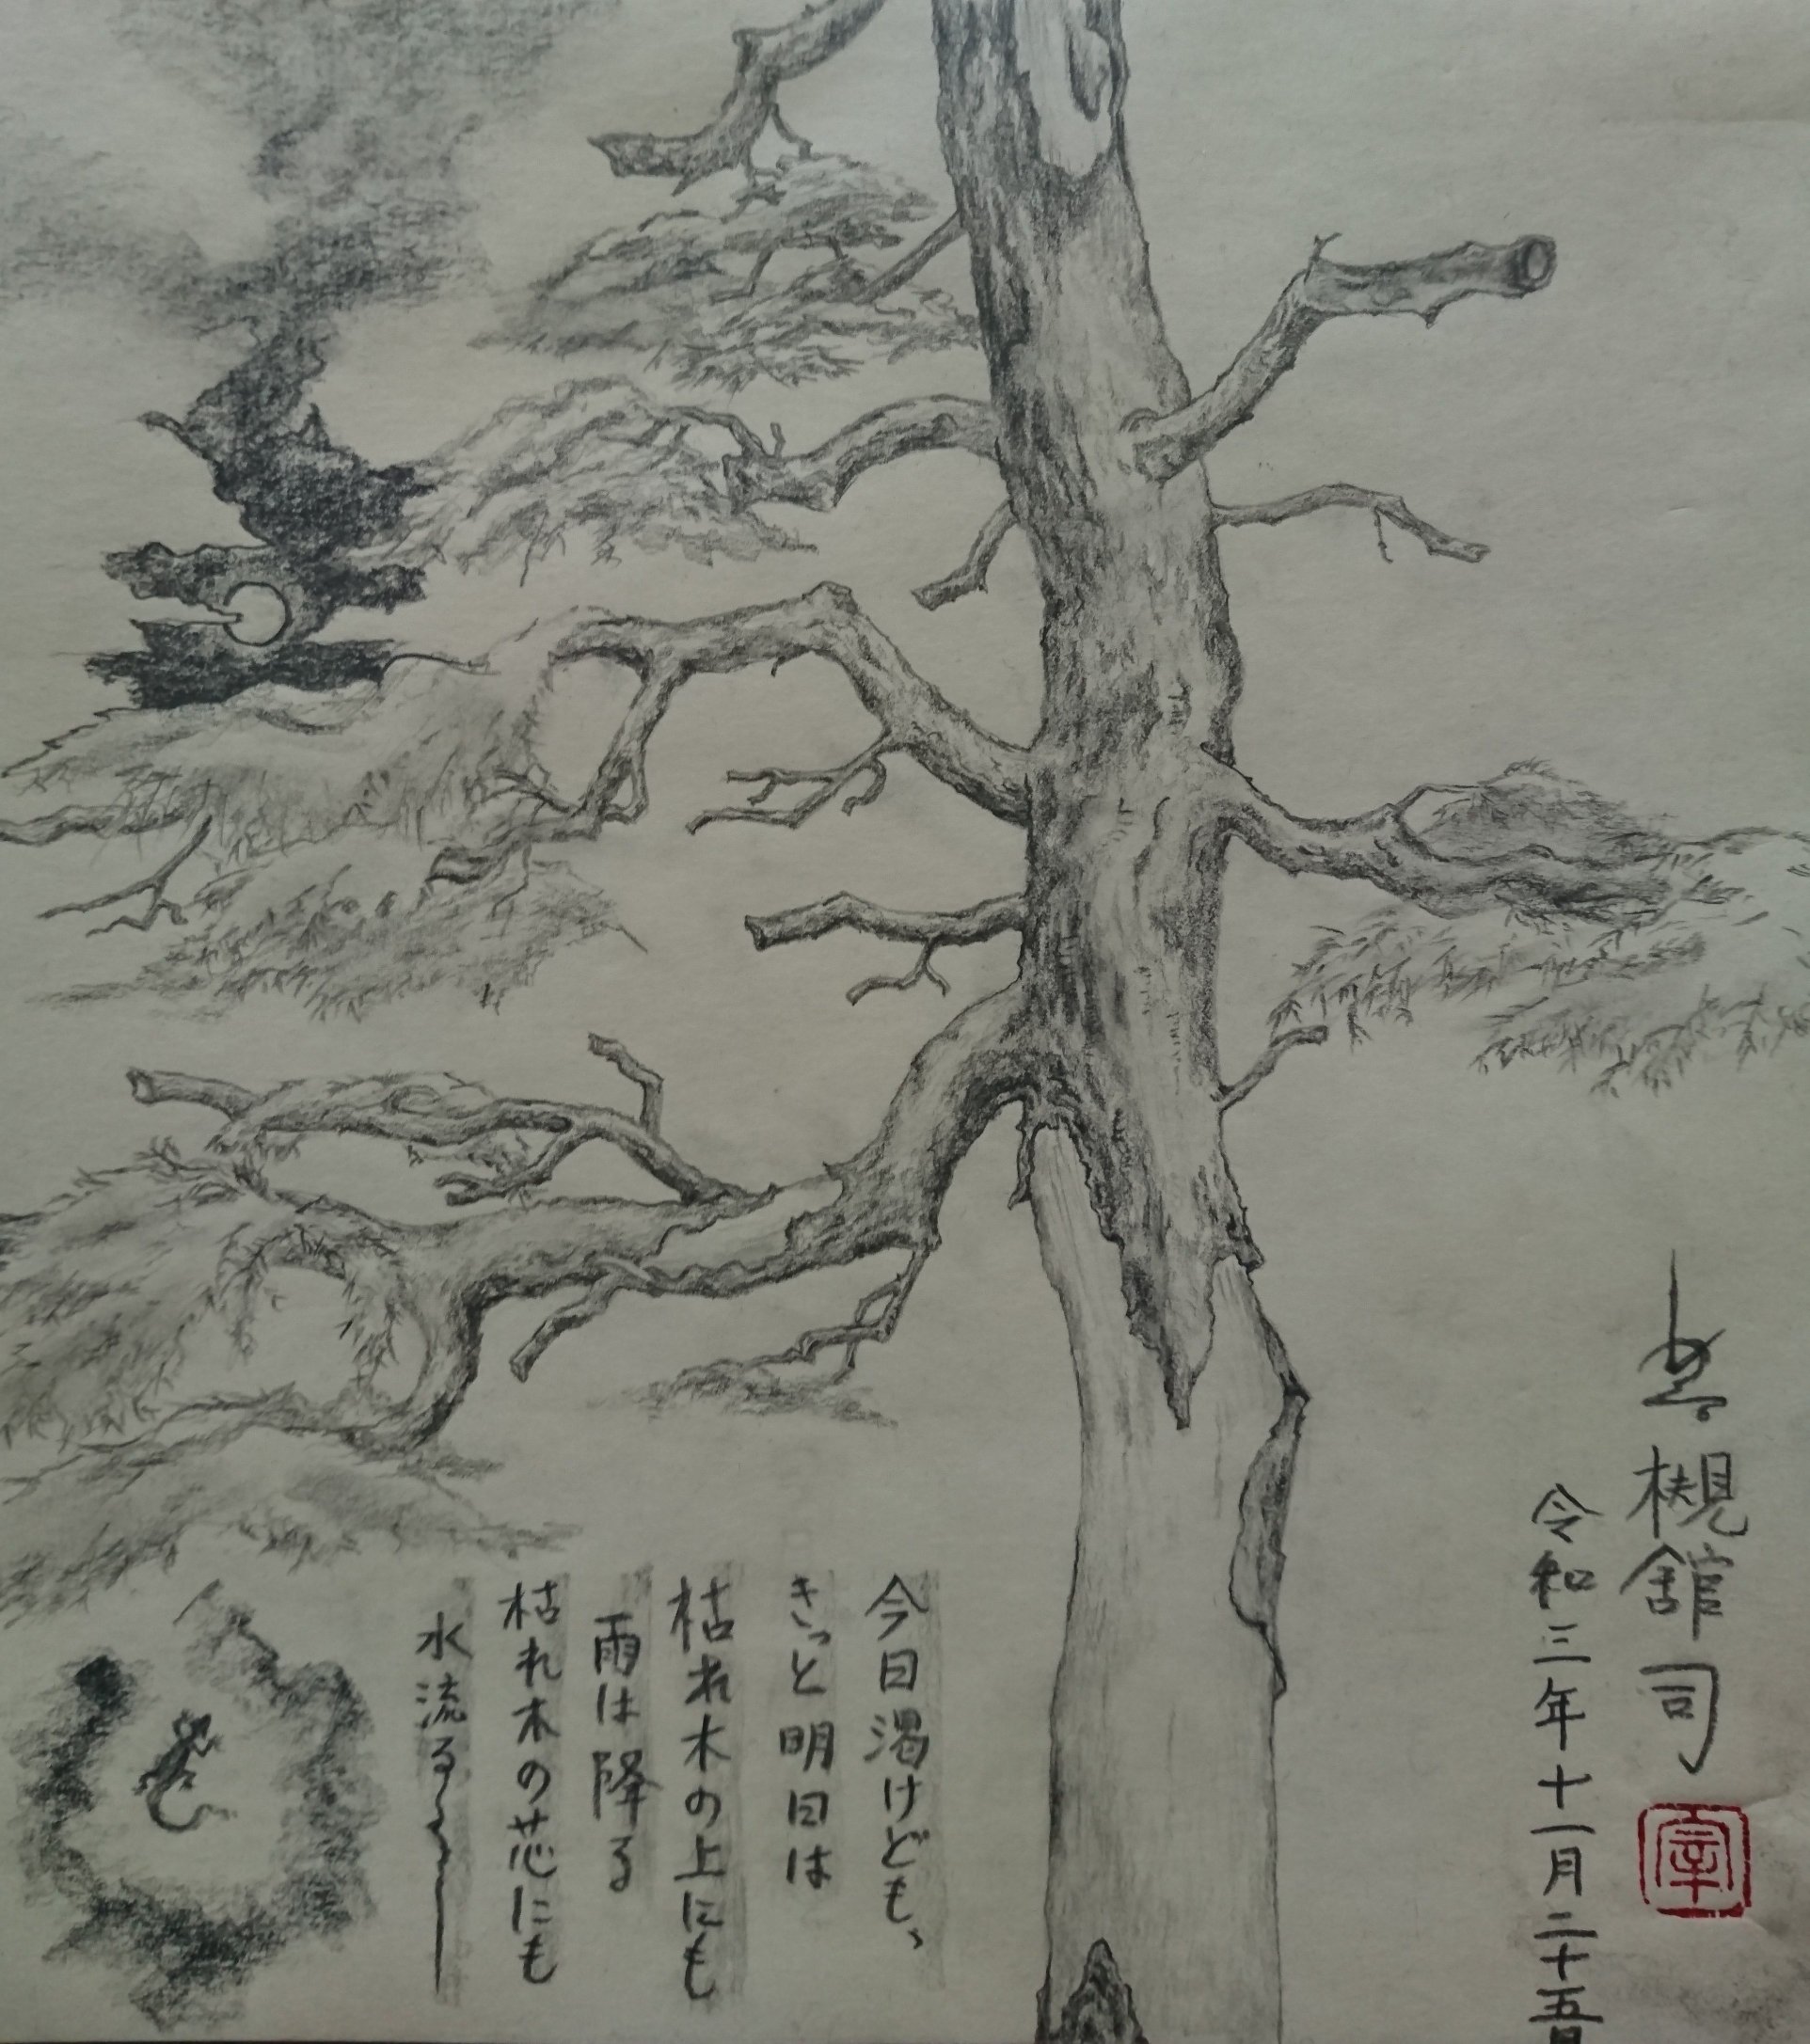 槻舘司
令和三年十一月二十五日
今日渇けども、
きっと明日は
枯れ木の上にも
雨は降る
枯れ木の芯にも
水流る